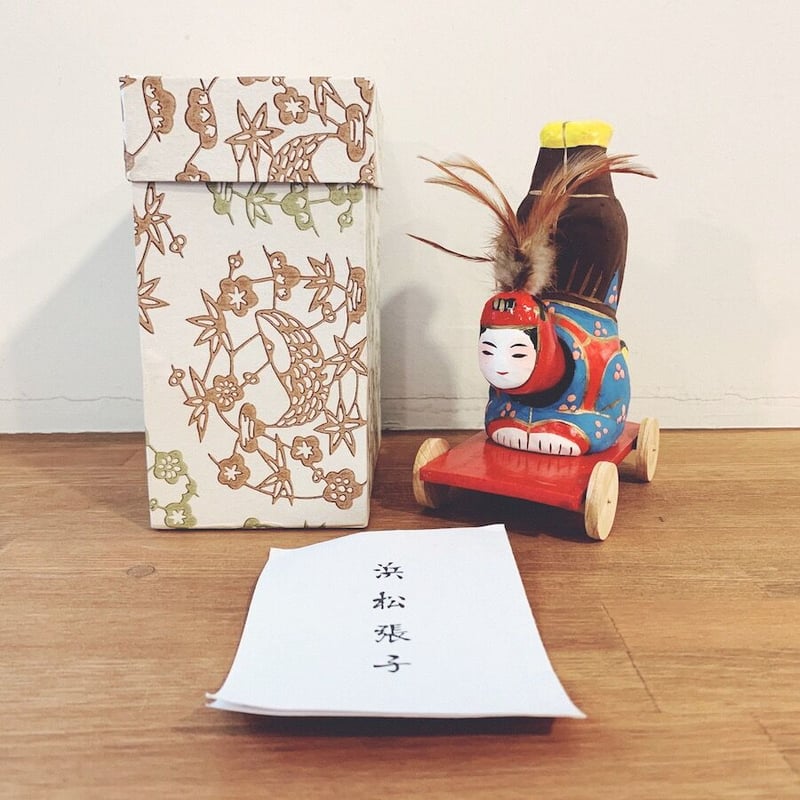 浜松張子